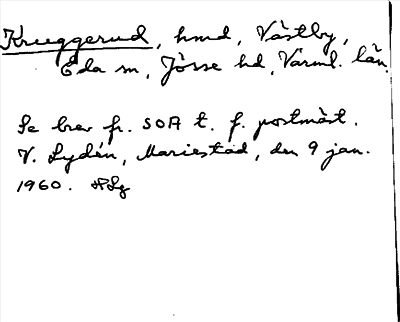 Kruggerud, hmd, Västby,
Eda sn, Jösse hd, Värml. län.
Se brev fr. SOA t. f. postmäst.
V. Lydén, Mariestad, den 9 jan.
1960.